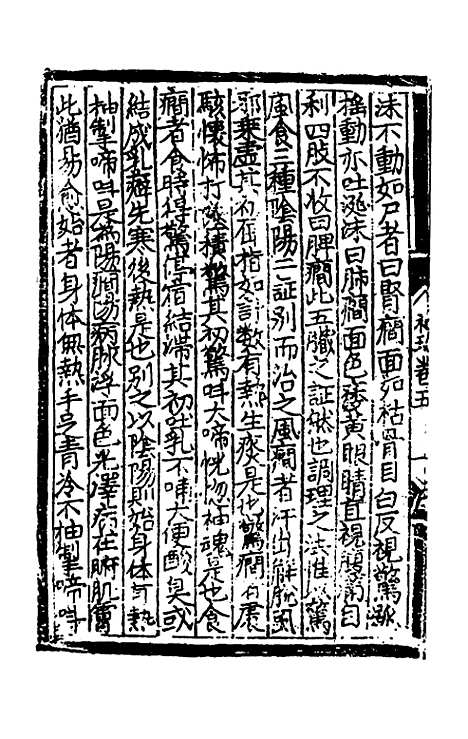 沫不動如尸者曰腎癇面如枯骨目白反視驚跳
搖動亦吐涎沫曰肺癇面色痿黃眼睛直視腹滿自
利四肢不收曰脾癇此五臟之証然也調理之法惟以驚
風食三種陰陽二証別而治之風癇者汗出解脫風
邪乘虛其初屈指如計數有熱生痰是也驚癇者
駭懷怖打墜積驚其初驚叫大啼恍惚神魂是也食
癇者食時得驚停宿結滯其初吐乳不哺大便酸臭或
結成乳癖先寒後熱是也別之以陰陽則始身体有熱
抽掣啼叫是為陽癇易病脉浮面色光澤病在腑肌膚
此猶易愈始者身体無熱手足青冷不抽掣啼叫
卷五